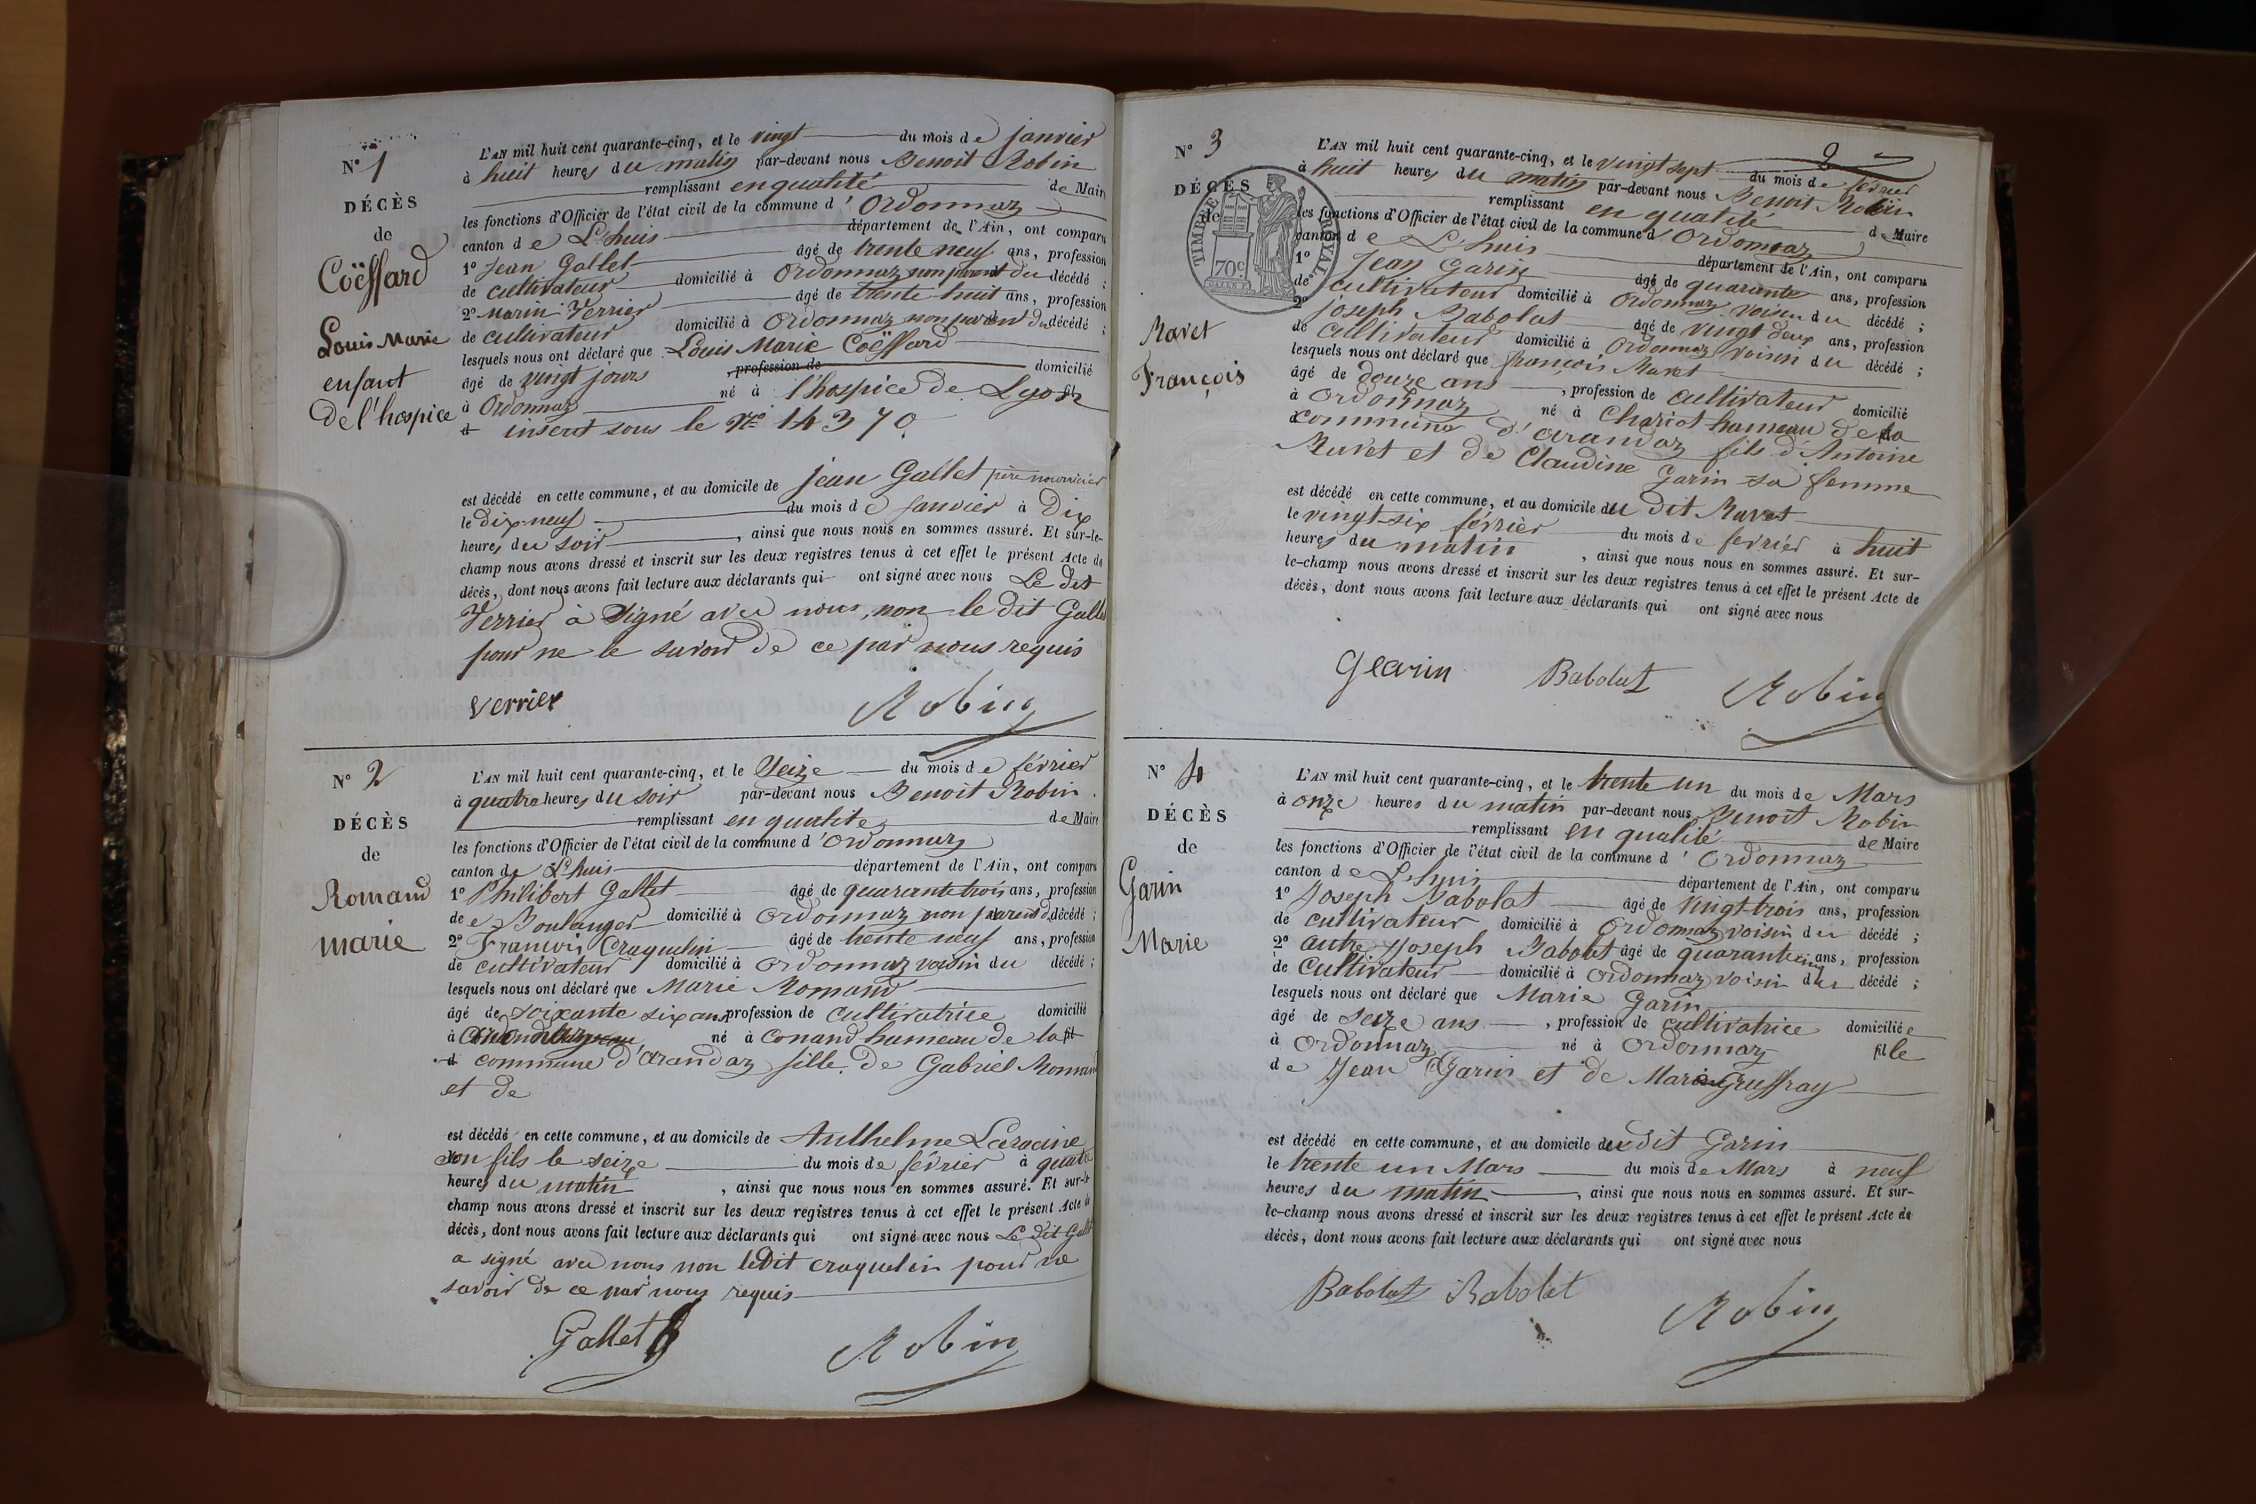 N° 1
DÉCÈS
de
Coëffard
Louis Marie
enfant
de l'hospice
L'AN mil huit cent quarante-cinq, et le vingt du mois de janvier
à huit heures du matin par-devant nous Benoit Robin
remplissant en qualité de Maire
les fonctions d'Officier de l'état civil de la commune d'Ordonnaz
canton de L'huis département de l'Ain, ont comparu
1° Jean Gallet âgé de trente neuf ans, profession
de cultivateur domicilié à Ordonnaz non parent du décédé ;
2° Marin Verrier âgé de trente huit ans, profession
de cultivateur domicilié à Ordonnaz non parent du décédé ;
lesquels nous ont déclaré que Louis Marie Coëffard
âgé de vingt jours , profession de domicilié
à Ordonnaz né à l'hospice de Lyon fil
d inscrit sous le N° 14370
est décédé en cette commune, et au domicile de jean Gallet père nourricier
le dix-neuf du mois de janvier à dix
heures du soir , ainsi que nous nous en sommes assuré. Et sur-le-
champ nous avons dressé et inscrit sur les deux registres tenus à cet effet le présent Acte de
décès, dont nous avons fait lecture aux déclarants qui ont signé avec nous Le dit
Verrier à signé avec nous, non le dit Gallet
pour ne le savoir de ce par nous requis
Verrier Robin
N° 2
DÉCÈS
de
Romand
marie
L'AN mil huit cent quarante-cinq, et le seize du mois de février
à quatre heures du soir par-devant nous Benoit Robin
remplissant en qualité de Maire
les fonctions d'Officier de l'état civil de la commune d'Ordonnaz
canton de L'huis département de l'Ain, ont comparu
1° Philibert Gallet âgé de quarante trois ans, profession
de Boulanger domicilié à Ordonnaz non parent d décédé ;
2° François Craquelin âgé de trente neuf ans, profession
de cultivateur domicilié à Ordonnaz voisin du décédé ;
lesquels nous ont déclaré que Marie Romand
âgé de soixante six ans profession de cultivatrice domicilié
à né à Conand hameau de la fil
d commune d'arandaz fille de Gabriel Romand
et de
est décédé en cette commune, et au domicile de Anthelme
son fils le seize du mois de février à quatre
heures du matin , ainsi que nous nous en sommes assuré. Et sur-le-
champ nous avons dressé et inscrit sur les deux registres tenus à cet effet le présent Acte de
décès, dont nous avons fait lecture aux déclarants qui ont signé avec nous Le dit Gallet
a signé avec nous non le Dit craquelin pour ne
savoir de ce par nous requis
Gallet Robin
2
N° 3
DÉCÈS
de
TIMBRE ROYAL
70c.
Ravet
François
L'AN mil huit cent quarante-cinq, et le vingt sept du mois de février
à huit heures du matin par-devant nous Benoit Robin
remplissant en qualité de Maire
les fonctions d'Officier de l'état civil de la commune d'Ordonnaz
canton de L'huis département de l'Ain, ont comparu
1° Jean Garin âgé de quarante ans, profession
de cultivateur domicilié à Ordonnaz voisin du décédé ;
2° joseph Babolat âgé de vingt deux ans, profession
de cultivateur domicilié à Ordonnaz voisin du décédé ;
lesquels nous ont déclaré que françois Ravet
âgé de douze ans , profession de cultivateur domicilié
à Ordonnaz né à Chariot hameau de la
commune d'arandaz fils d'Antoine
Ravet et de Claudine Garin sa femme
est décédé en cette commune, et au domicile du dit Ravet
le vingt-six février du mois de février à huit
heures du matin , ainsi que nous nous en sommes assuré. Et sur-
le-champ nous avons dressé et inscrit sur les deux registres tenus à cet effet le présent Acte de
décès, dont nous avons fait lecture aux déclarants qui ont signé avec nous
Garin Babolat Robin
N° 4
DÉCÈS
de
Garin
Marie
L'AN mil huit cent quarante-cinq, et le trente un du mois de Mars
à onze heures du matin par-devant nous Benoit Robin
remplissant en qualité de Maire
les fonctions d'Officier de l'état civil de la commune d'Ordonnaz
canton de L'huis département de l'Ain, ont comparu
1° Joseph Babolat âgé de vingt-trois ans, profession
de cultivateur domicilié à Ordonnaz voisin du décédé ;
2° autre Joseph Babolat âgé de quarante cinq ans, profession
de cultivateur domicilié à Ordonnaz voisin du décédé ;
lesquels nous ont déclaré que Marie Garin
âgé de seize ans , profession de cultivatrice domiciliée
à Ordonnaz né à Ordonnaz fille
de Jean Garin et de Marie Gruffray
est décédé en cette commune, et au domicile du dit Garin
le trente un Mars du mois de Mars à neuf
heures du matin , ainsi que nous nous en sommes assuré. Et sur-
le-champ nous avons dressé et inscrit sur les deux registres tenus à cet effet le présent Acte de
décès, dont nous avons fait lecture aux déclarants qui ont signé avec nous
Babolat Babolat Robin